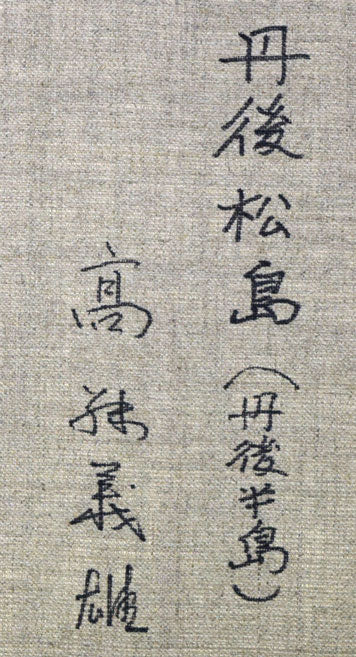 丹後松島(丹後半島)
髙 義雄